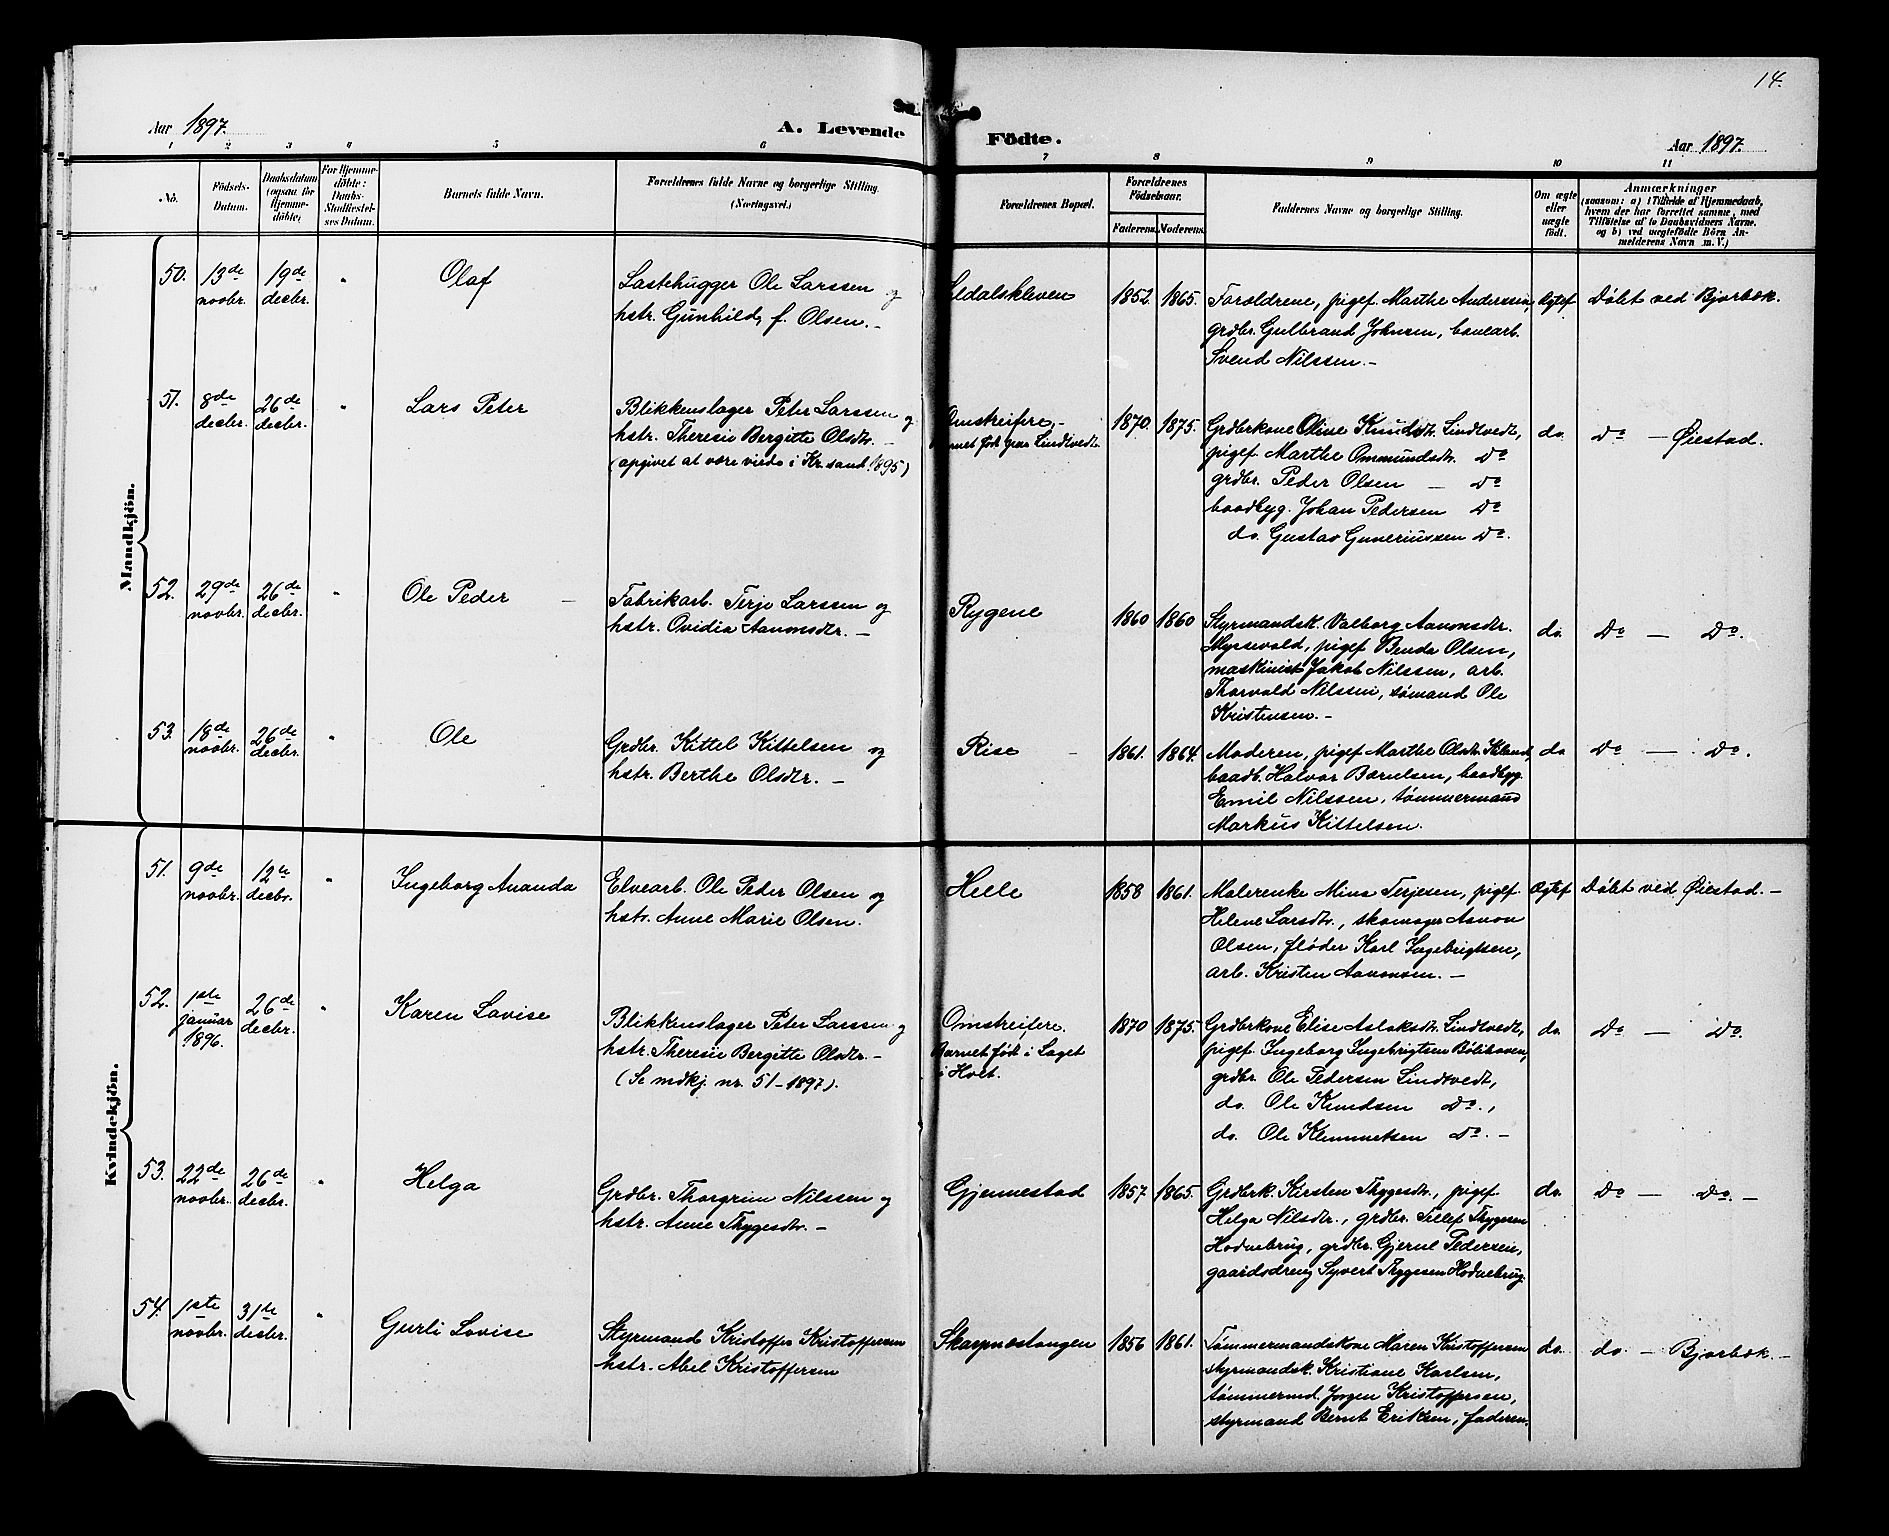 14.
Aar 1897.
A. Levende
Födte.
Aar 1897.
1 2 3 4 5 6 7 8 9 10 11
No.
Födsels-
Datum.
Daabsdatum
(ogsaa for
Hjemme-
döbte;
For Hjemme-
döbte:
Daabs-
Stadfæstel-
ses Datum.
Barnets fulde Navn.
Forældrenes fulde Navne og borgerlige Stilling.
(Næringsvei.)
Forældrenes Bopæl.
Forældrenes
Födselsaar.
Faderens. Moderens.
Faddernes Navne og borgerlige Stilling.
Om ægte
eller
uægte
födt.
Anmærkninger
(saasom: a) i Tilfælde af Hjemmedaab,
hvem der har forrettet samme, med
Tilföielse af to Daabsvidners Navne.
og b) ved uægtefödte Börn An-
melderens Navn m. V.)
Mandkjön.
50. 13de novbr. 19de decbr. " Olaf
Lastehugger Ole Larssen og
hstr. Gunhild, f. Olsen. -
Sedalskleven 1852. 1865.
Forældrene, pigef. Marthe Anderssen,
grdbr. Gulbrand Johnsen, banearb.
Svend Nilssen. -
Ægtef. Døbt ved Bjorbæk.
51. 8de decbr. 26de decbr. " Lars Peter
Blikkenslager Peter Larssen og
hstr. Theresie Bergitte Olsdtr. -
(opgivet at være viede i Kr.sand 1895)
Omstreifere, -
Barnet født paa Lindtvedt.
1870. 1875.
Grdbrkone Oline Knudsdtr. Lindtvedt,
pigef. Marthe Ommundsdtr. Do
grdbr. Peder Olsen - Do
baadbyg. Johan Pedersen Do
do. Gustav Guneriussen Do.
do. Do - Øiestad.
52. 29de novbr. 26de decbr. " Ole Peder -
Fabrikarb. Terje Larssen og
hstr. Ovidia Aanonsdtr. -
Rygene 1860 1860
Styrmandsk. Valborg Aanonsdtr.
Myrsevold, pigef. Benda Olsen,
maskinist Jakob Nilssen, arb.
Thorvald Nilssen, sømand Ole
Kristensen. -
do. Do - Do.
53. 18de novbr. 26de decbr. " Ole
Grdbr. Kittel Kittelsen og
hstr. Berthe Olsdtr. -
Rise - 1861. 1864.
Moderen, pigef. Marthe Olsdtr.
baadb. Halvor Bærulsen, baadbyg.
Emil Nilssen, tømmermand
Markus Kittelsen.
do Do - Do.
Kvindekjön.
51. 9de novbr. 12te decbr. " Ingeborg Ananda
Elvearb. Ole Peder Olsen og
hstr. Anne Marie Olsen.
Helle 1858 1861.
Malerenke Mina Terjesen, pigef.
Helene Larsdtr., skomager Aanon
Olsen, fløder Karl Ingebrigtsen,
arb. Kristen Aanonsen. -
Ægtef. Døbt ved Øiestad. -
52. 1ste januar 1896. 26de decbr. " Karen Lovise
Blikkenslager Peter Larssen og
hstr. Theresie Bergitte Olsdtr. -
(Se mdkj. nr. 51 - 1897).
Omstreifere.
Barnet født i Laget
i Holt.
1870 1875.
Grdbrkone Elise Aslaksdtr. Lindtvedt,
pigef. Ingeborg Ingebrigtsen
grdbr. Ole Pedersen Lindtvedt,
do. Ole Knudsen Do.,
do. Ole Klemmetsen do. -
do. Do - Do.
53. 22de novbr. 26de decbr. " Helga
Grdbr. Thorgrim Nilssen og
hstr. Anne Thygesdtr. -
Gjennestad 1857. 1865.
Grdbrk. Kirsten Thygesdtr., pigef.
Helga Nilsdtr., grdbr. Tellef Thygesen
Hodnebrug, grdbr. Gjerul Pedersen,
gaardsdreng Syvert Thygesen Hodnebrug.
do. Do - Do. -
54. 1ste novbr. 31de decbr. " Gurli Lovise
Styrmand Kristoffer Kristoffersen
hstr. Abel Kristoffersen
Skarpnestangen 1856 1861.
Tømmermandskone Maren Kristoffersen
styrmandsk. Kristiane Karlsen,
tømmermd. Jørgen Kristoffersen,
styrmand Bernt Eriksen, faderen.
do. do. - Bjorbæk. -